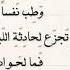 وطب نفساً
تجزع لحادثة اللي
فما لحواد